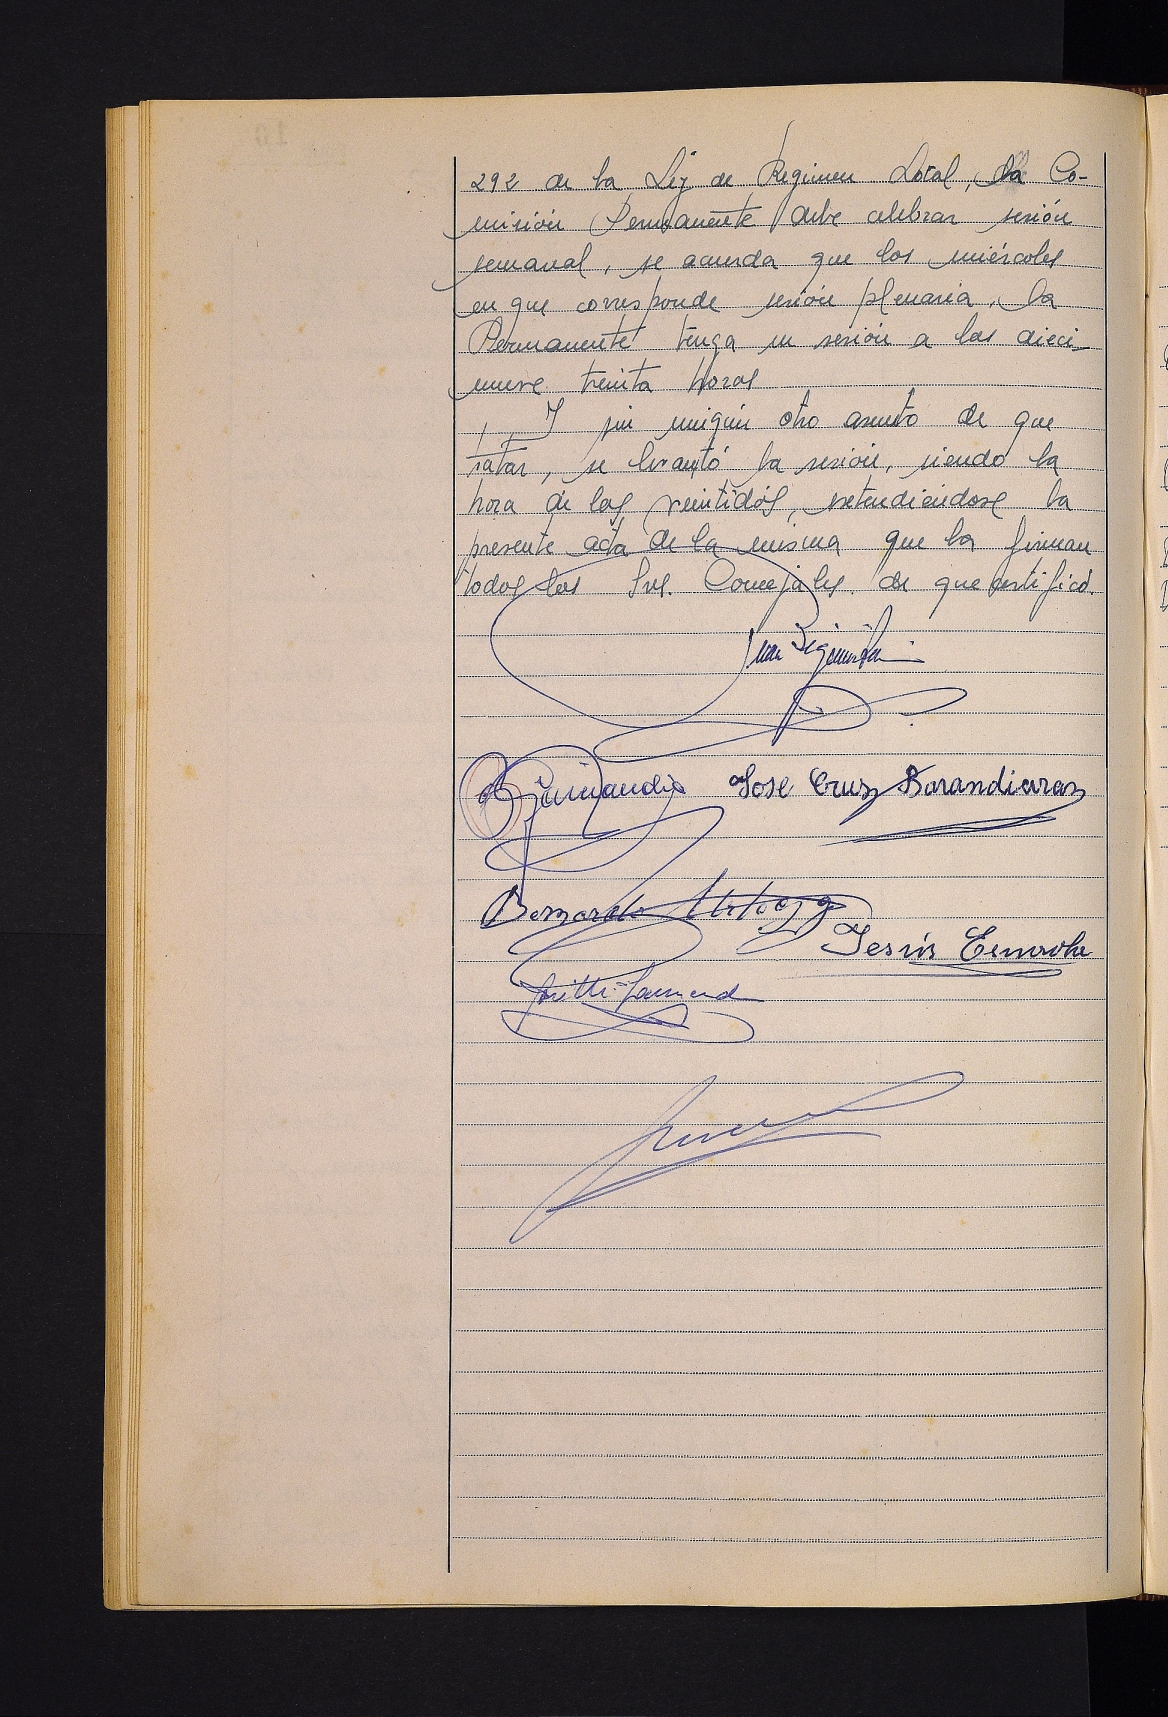 292 de la Ley de Regimen Local, la Co-
misión Permanente debe celebrar sesión
semanal, se acuerda que los miércoles
en que corresponde sesión plenaria, la
Permanente tenga su sesión a las dieci-
nueve treinta horas
Y sin ningún otro asunto de que
tratar, se levantó la sesión, siendo la
hora de las veintidós, extendiéndose la
presente acta de la misma que la firman
todos los Srs. Concejales de que certifico.
Jose Cruz Barandiaran
Bernardo
Jesús